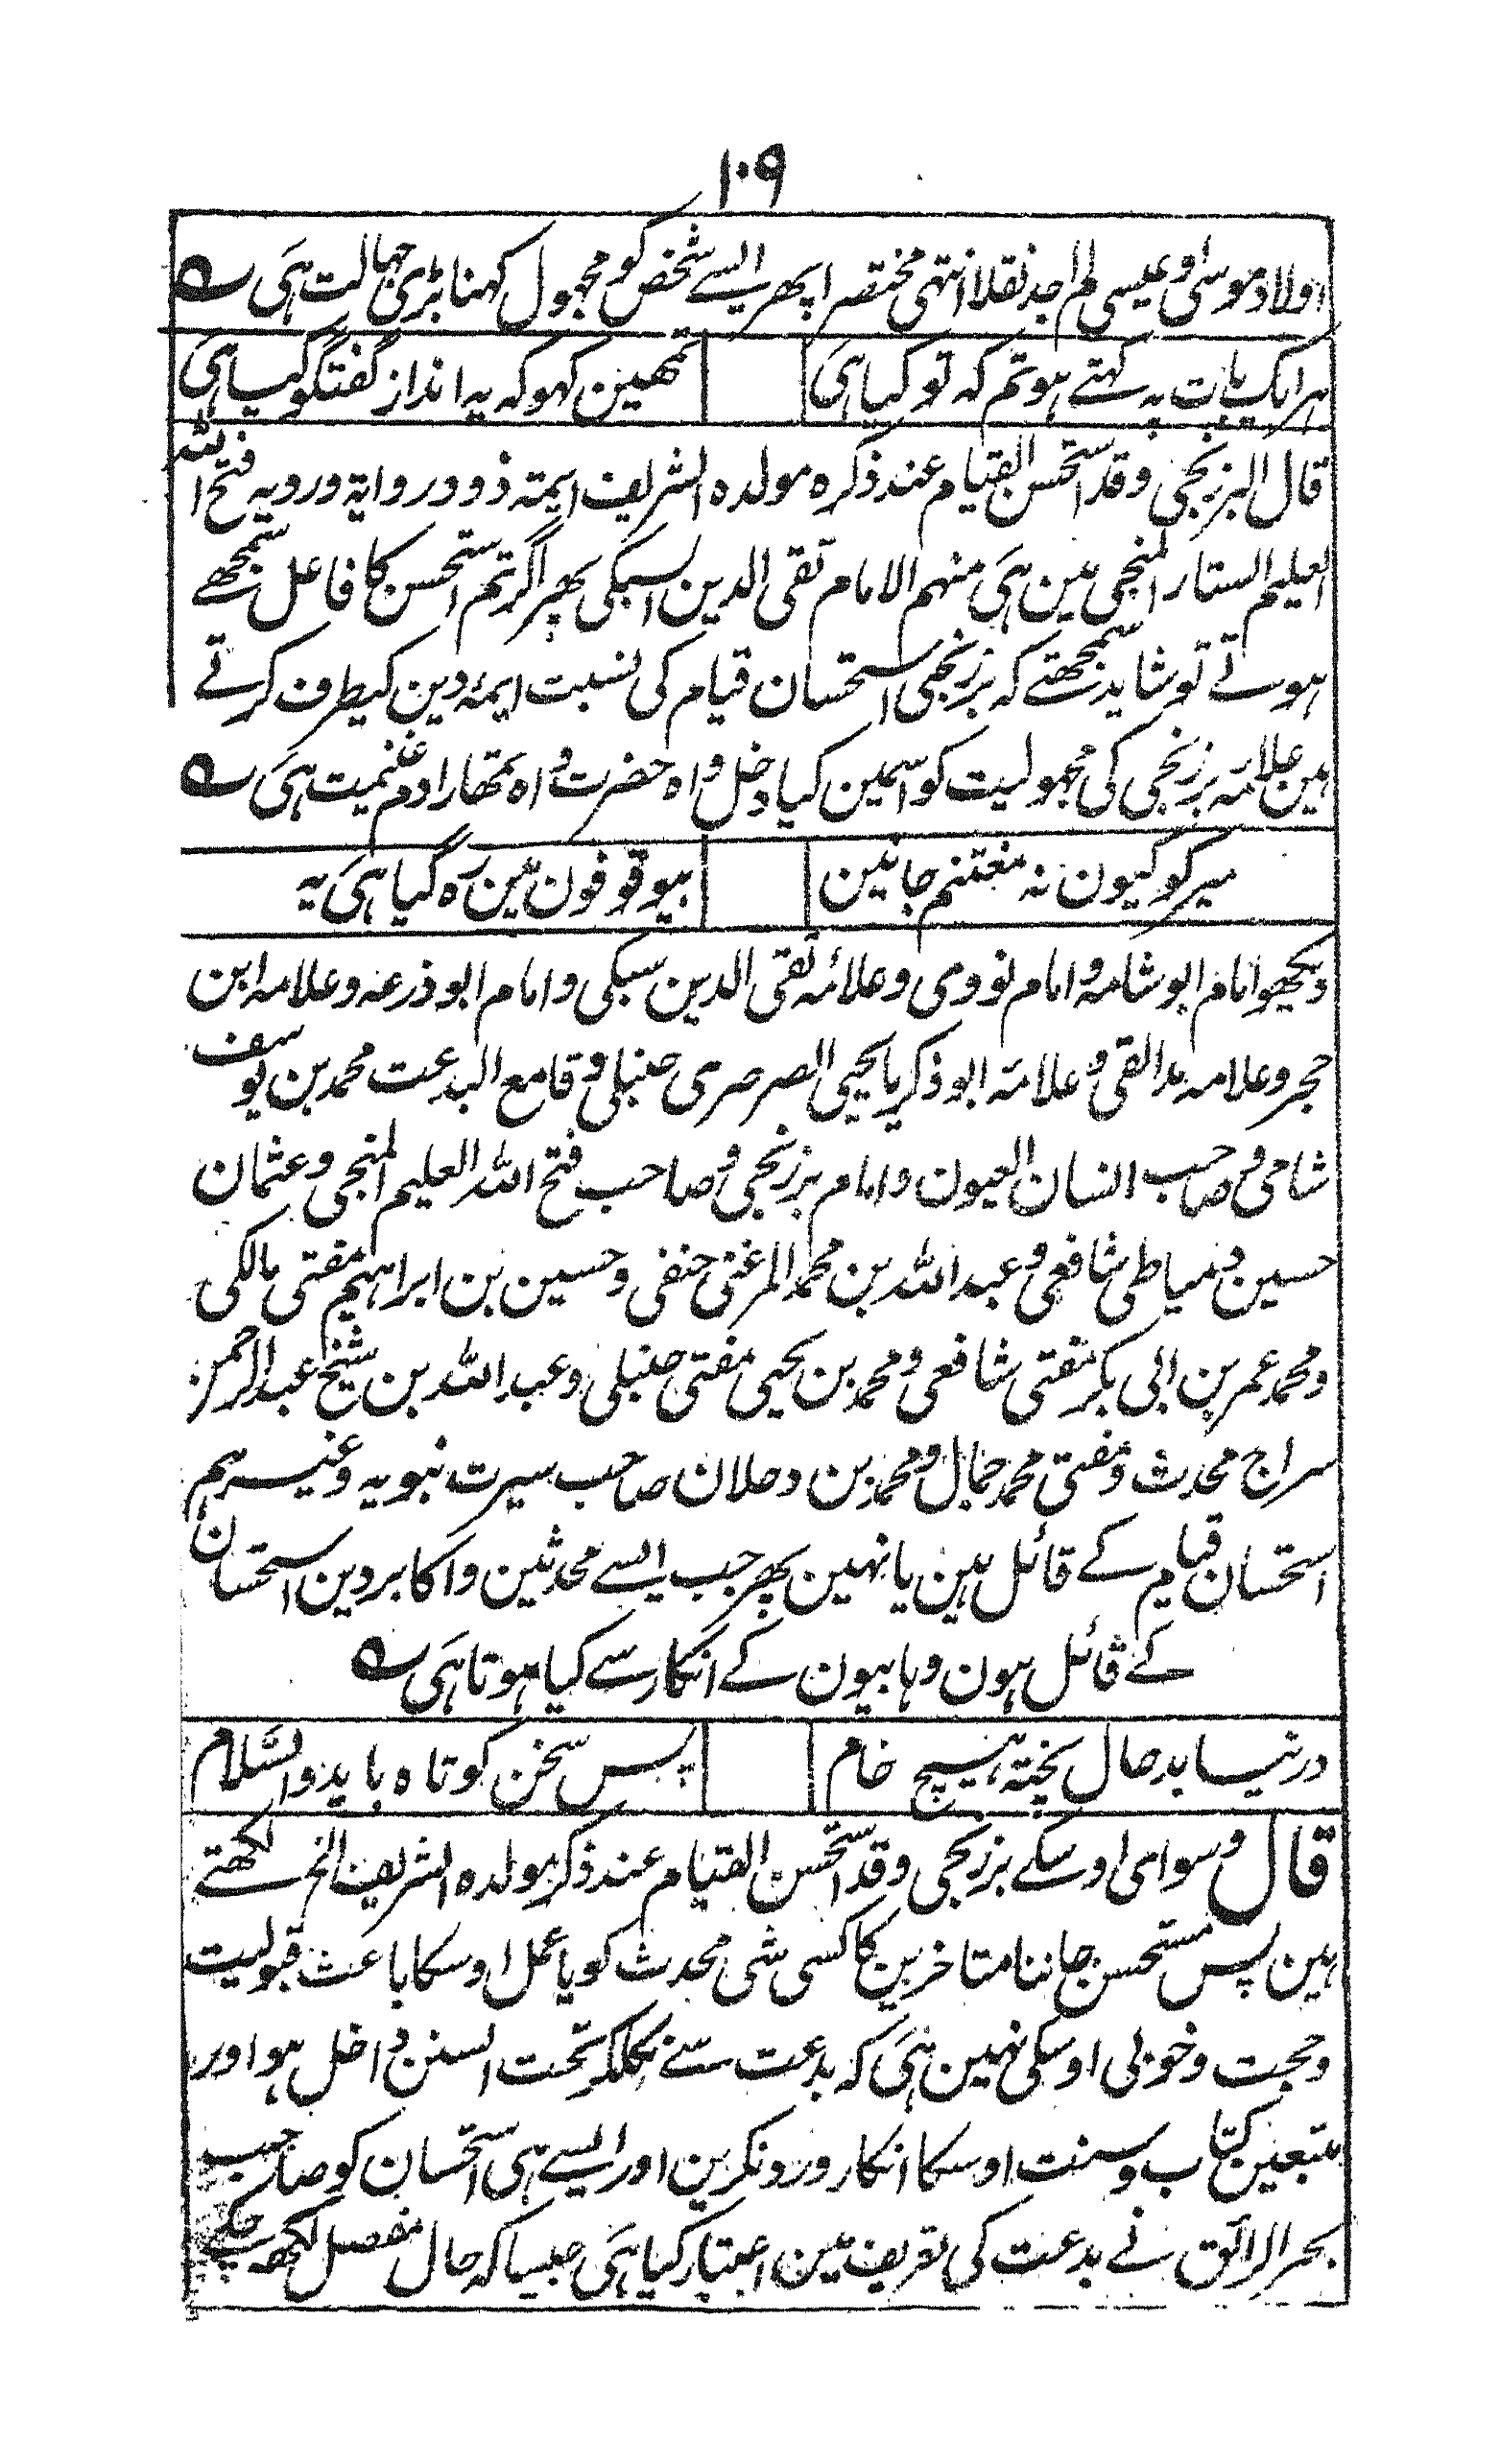 ۱۰۹
اولاد موسی و عیسی لم اجد نقلا انتهی مختصرا پھر ایسے شخص کو مجهول کہنا بڑی جهالت ہی ؎
ہر ایک بات پہ کہتے ہو تم کہ تو کیا ہی تمھین کہو کہ یہ انداز گفتگو کیا ہی
قال البرزنجی وقد استحسن القیام عند ذکره مولده الشریف ایمته ذوو روایة ورویه فتح اللہ
العلیم الستار المنجی مین ہی منهم الامام تقی الدین السبکی پھر اگر تم استحسن کا فاعل سمجھے
ہوتے تو شاید سمجھتے کہ برزنجی استحسان قیام کی نسبت ایمۂ دین کیطرف کرتے
ہین علامہ برزنجی کی مجهولیت کو اسمین کیا دخل واہ حضرت واہ تمھارا دم غنیمت ہی ؎
میر کو کیون نہ مغتنم جانین بیوقوفون مین رہ گیا ہی یہ
دیکھو امام ابو شامہ و امام نووی و علامہ تقی الدین سبکی و امام ابو ذرعہ و علامہ ابن
حجر و علامہ علا القی و علامہ ابو ذکریا یحیی الصرصری حنبلی و قامع البدعت محمد بن یوسف
شامی و صاحب انسان العیون و امام برزنجی و صاحب فتح اللہ العلیم المنجی و عثمان
حسین دمیاطی شافعی و عبد اللہ بن محمد المرغنی حنفی و حسین بن ابراهیم مفتی مالکی
و محمد عمر بن ابی بکر مفتی شافعی و محمد بن یحیی مفتی حنبلی و عبد اللہ بن شیخ عبد الرحمن
سراج محدث و مفتی محمد جمال و محمد بن دحلان صاحب سیرت نبویہ و غیرہم
استحسان قیام کے قائل ہین یا نہین پھر جب ایسے محدثین و اکابر دین استحسان
کے قائل ہون وہابیون کے انکار سے کیا ہوتا ہی ؎
در نیابد حال پختہ ہیچ خام پس سخن کوتاہ باید والسلام
قال و سوای اوسکے برزنجی وقد استحسن القیام عند ذکر مولده الشریف الخ لکھتے
ہین پس مستحسن جاننا متاخرین کا کسی شی محدث کو یا عمل اوسکا باعث قبولیت
و حجت و خوبی اوسکی نہین ہی کہ بدعت سے نکلکر تحت السنن داخل ہو اور
متبعین کتاب و سنت اوسکا انکار و رد نکرین اور ایسے ہی استحسان کو صاحب
بحر الرائق نے بدعت کی تعریف مین اعتبار کیا ہی جیسا کہ حال مفصل لکھ چکے